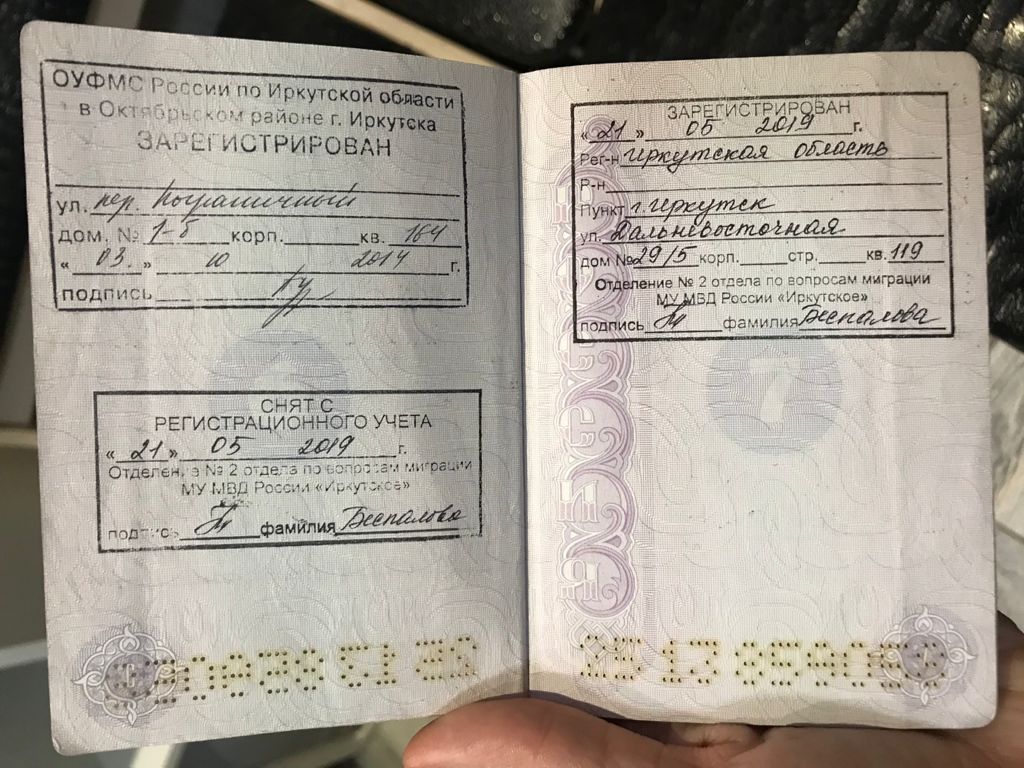 ОУФМС России по Иркутской области
в Октябрьском районе г. Иркутска
ЗАРЕГИСТРИРОВАН
ул. пер. Пограничный
дом. № 1-б корп. кв. 164
« 03. » 10 2014 г.
подпись
СНЯТ С
РЕГИСТРАЦИОННОГО УЧЕТА
« 21 » 05 2019 г.
Отделение № 2 отдела по вопросам миграции
МУ МВД России «Иркутское»
подпись фамилия Беспалова
ЗАРЕГИСТРИРОВАН
« 21 » 05 2019 г.
Рег-н Иркутская область
Р-н
Пункт г. Иркутск
ул. Дальневосточная
дом № 29/5 корп. стр. кв. 119
Отделение № 2 отдела по вопросам миграции
МУ МВД России «Иркутское»
подпись фамилия Беспалова
7